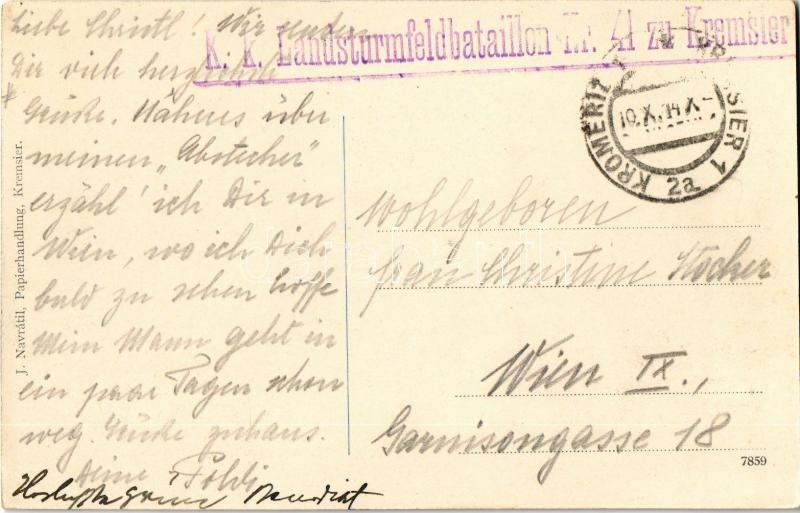 K. k. Landsturmfeldbataillon Nr. 41 zu Kremsier
Liebe Christl! Wir senden
Dir viele herzliche
Grüße. Näheres über
meinen „Abstecher"
erzähl' ich Dir in
Wien, wo ich Dich
bald zu sehen hoffe
Mein Mann geht in
ein paar Tagen schon
weg. Grüße zuhaus.
Deine Poldi
KROMĚŘÍŽ 1 KREMSIER 1
10.X.14.X-
2a
Wohlgeboren
Frau Christine Stöcher
Wien IX.,
Garnisongasse 18
7859
J. Navrátil, Papierhandlung, Kremsier.